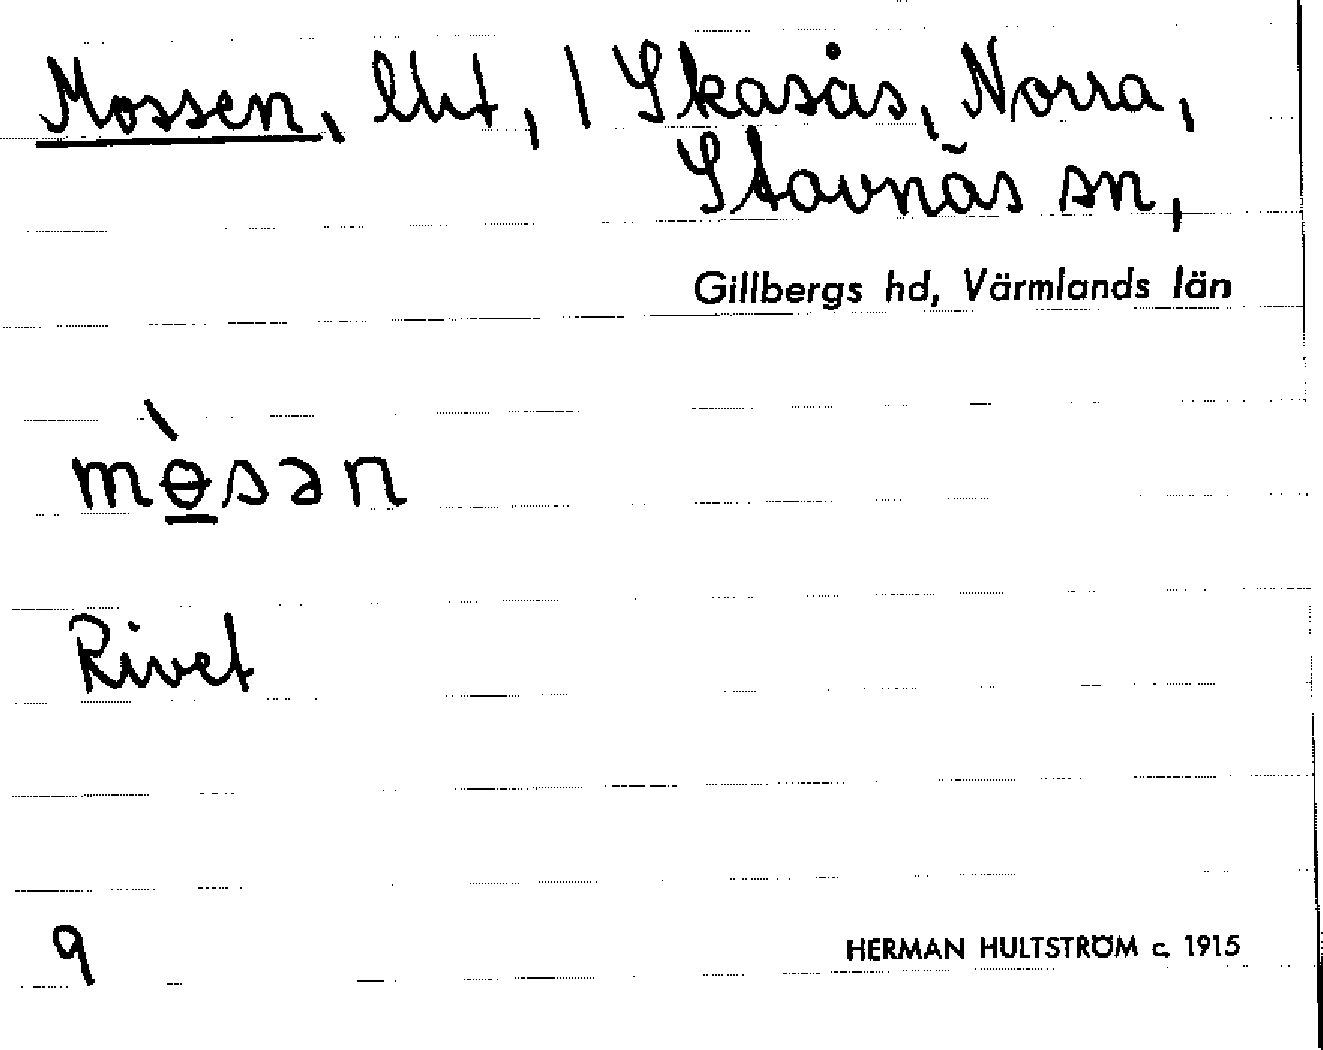 Mossen, lht, / Skasås, Norra,
Stavnäs sn,
Gillbergs hd, Värmlands län
mɵ̀sən
Rivet
9
HERMAN HULTSTRÖM c. 1915